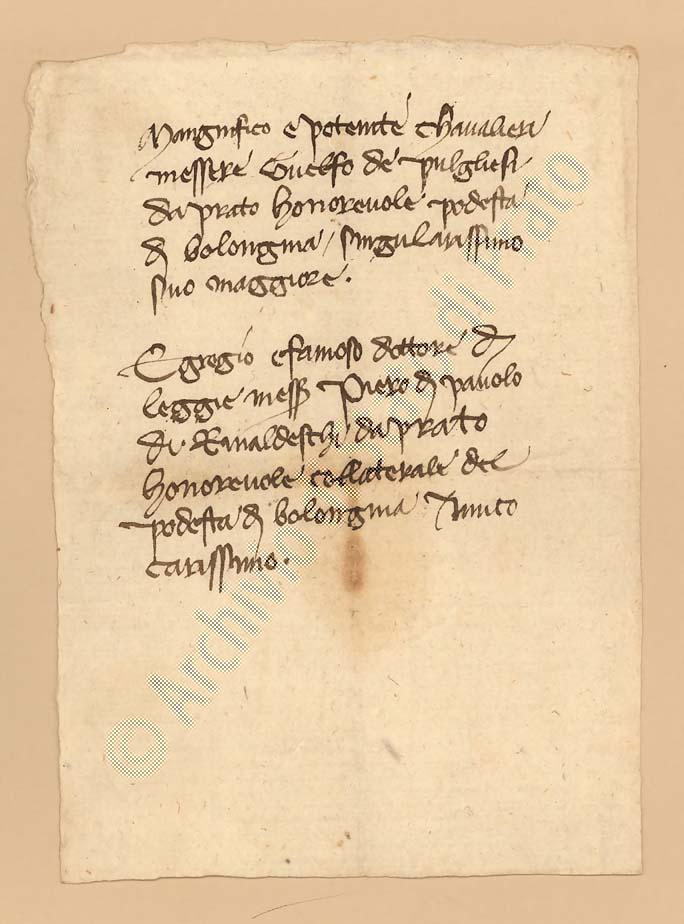 Mangnifico e potente chavaliere
messere Guelfo de pulgliesi
da prato honorevole podesta
di bolongnia / singularissimo
suo maggiore.
Egregio e famoso dottore di
leggie mess Piero di pavolo
di Rinaldeschi da prato
honorevole collaterale del
podesta di bolongnia Amico
carissimo.
© Archivio di Stato di Prato